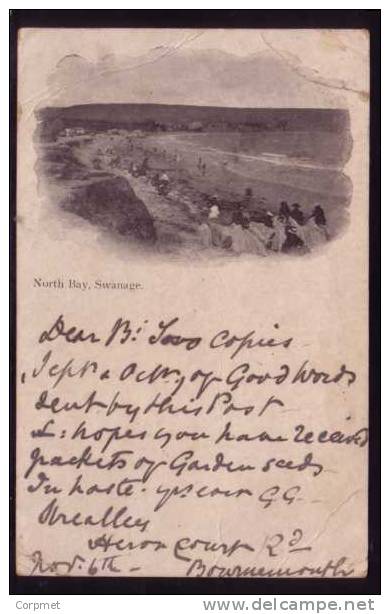 North Bay, Swanage.
Dear B: Two copies
Sept & Octr, of Good Words
sent by this Post
L: hopes you have received
packets of Garden seeds
In haste. yrs ever GG
Heron Court Rd
Nov. 6th - Bournemouth
© delcampe.net